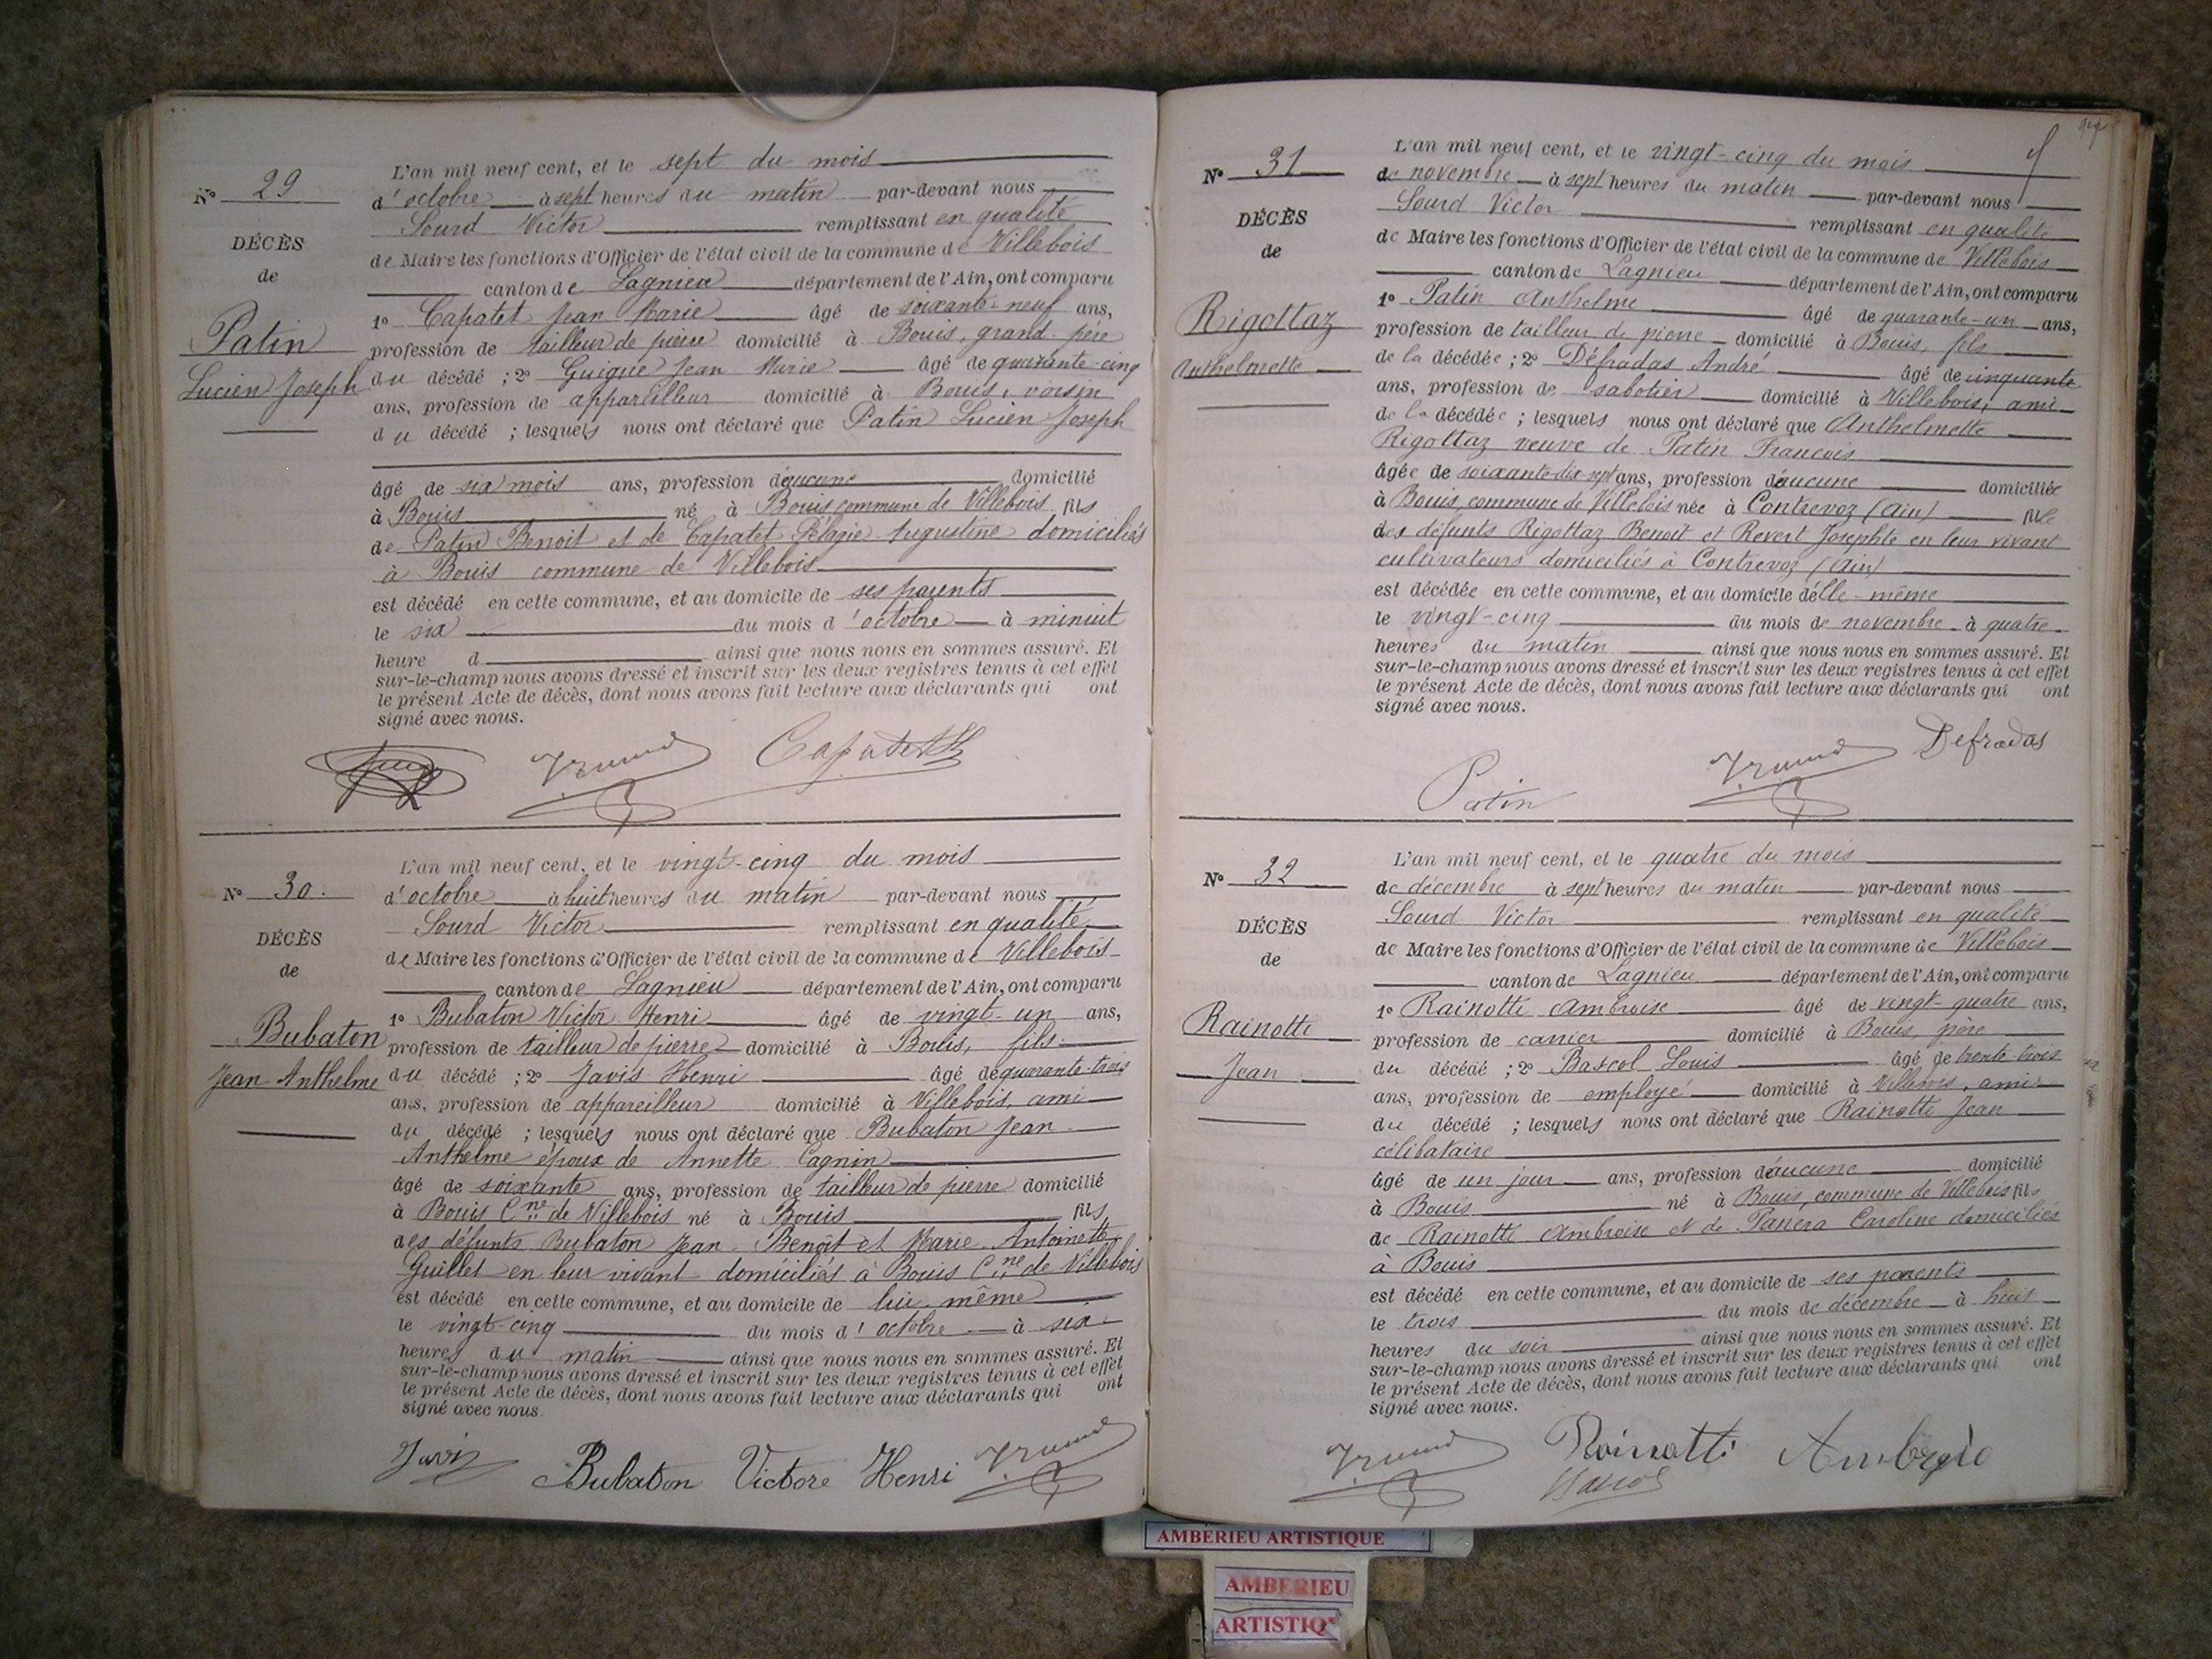 N° 29
DÉCÈS
de
Patin
Lucien Joseph
L'an mil neuf cent, et le sept du mois
d'octobre à sept heures du matin par-devant nous
Sourd Victor remplissant en qualité
de Maire les fonctions d'Officier de l'état civil de la commune de Villebois
canton de Lagnieu département de l'Ain, ont comparu
1° Capatet Jean Marie âgé de soixante-neuf ans,
profession de tailleur de pierre domicilié à Bouis, grand-père
du décédé ; 2° Guigue Jean Marie âgé de quarante-cinq
ans, profession de appareilleur domicilié à Bouis, voisin
du décédé ; lesquels nous ont déclaré que Patin Lucien Joseph
âgé de six mois ans, profession d'aucune domicilié
à Bouis né à Bouis commune de Villebois fils
de Patin Benoit et de Capatet Pélagie Augustine domiciliés
à Bouis commune de Villebois
est décédé en cette commune, et au domicile de ses parents
le six du mois d'octobre à minuit
heure d ainsi que nous nous en sommes assuré. Et
sur-le-champ nous avons dressé et inscrit sur les deux registres tenus à cet effet
le présent Acte de décès, dont nous avons fait lecture aux déclarants qui ont
signé avec nous.
Capatet
N° 30.
DÉCÈS
de
Bubaton
Jean-Anthelme
L'an mil neuf cent, et le vingt-cinq du mois
d'octobre à huit heures du matin par-devant nous
Sourd Victor remplissant en qualité
de Maire les fonctions d'Officier de l'état civil de la commune de Villebois
canton de Lagnieu département de l'Ain, ont comparu
1° Bubaton Victor Henri âgé de vingt-un ans,
profession de tailleur de pierre domicilié à Bouis, fils
du décédé ; 2° Javis Henri âgé de quarante-trois
ans, profession de appareilleur domicilié à Villebois, ami
du décédé ; lesquels nous ont déclaré que Bubaton Jean
Anthelme époux de Annette Cagnin
âgé de soixante ans, profession de tailleur de pierre domicilié
à Bouis Cne de Villebois né à Bouis fils
des défunts Bubaton Jean Benoît et Marie Antoinette
Guillet en leur vivant domiciliés à Bouis Cne de Villebois
est décédé en cette commune, et au domicile de lui-même
le vingt-cinq du mois d'octobre à six
heures du matin ainsi que nous nous en sommes assuré. Et
sur-le-champ nous avons dressé et inscrit sur les deux registres tenus à cet effet
le présent Acte de décès, dont nous avons fait lecture aux déclarants qui ont
signé avec nous
Javis Bubaton Victore Henri
N° 31
DÉCÈS
de
Rigottaz
Anthelmette
L'an mil neuf cent, et le vingt-cinq du mois
de novembre à sept heures du matin par-devant nous
Sourd Victor remplissant en qualité
de Maire les fonctions d'Officier de l'état civil de la commune de Villebois
canton de Lagnieu département de l'Ain, ont comparu
1° Patin Anthelme âgé de quarante-un ans,
profession de tailleur de pierre domicilié à Bouis, fils
de la décédée ; 2° Défradas André âgé de cinquante
ans, profession de sabotier domicilié à Villebois, ami
de la décédée ; lesquels nous ont déclaré que Anthelmette
Rigottaz veuve de Patin François
âgée de soixante-dix-sept ans, profession d'aucune domiciliée
à Bouis commune de Villebois née à Contrevoz (Ain) fille
des défunts Rigottaz Benoit et Revert Josephte en leur vivant
cultivateurs domiciliés à Contrevoz (Ain)
est décédée en cette commune, et au domicile d'elle-même
le vingt-cinq du mois de novembre à quatre
heures du matin ainsi que nous nous en sommes assuré. Et
sur-le-champ nous avons dressé et inscrit sur les deux registres tenus à cet effet
le présent Acte de décès, dont nous avons fait lecture aux déclarants qui ont
signé avec nous.
Defradas
Patin
N° 32
DÉCÈS
de
Rainotti
Jean
L'an mil neuf cent, et le quatre du mois
de décembre à sept heures du matin par-devant nous
Sourd Victor remplissant en qualité
de Maire les fonctions d'Officier de l'état civil de la commune de Villebois
canton de Lagnieu département de l'Ain, ont comparu
1° Rainotti Ambroise âgé de vingt-quatre ans,
profession de carrier domicilié à Bouis, père
du décédé ; 2° Bascol Louis âgé de trente-trois
ans, profession de employé domicilié à Villebois, ami
du décédé ; lesquels nous ont déclaré que Rainotti Jean
célibataire
âgé de un jour ans, profession d'aucune domicilié
à Bouis né à Bouis, commune de Villebois fils
de Rainotti Ambroise et de Panera Caroline domiciliés
à Bouis
est décédé en cette commune, et au domicile de ses parents
le trois du mois de décembre à huit
heures du soir ainsi que nous nous en sommes assuré. Et
sur-le-champ nous avons dressé et inscrit sur les deux registres tenus à cet effet
le présent Acte de décès, dont nous avons fait lecture aux déclarants qui ont
signé avec nous.
Roinotti Ambrogio
AMBERIEU ARTISTIQUE
AMBERIEU
ARTISTIQ